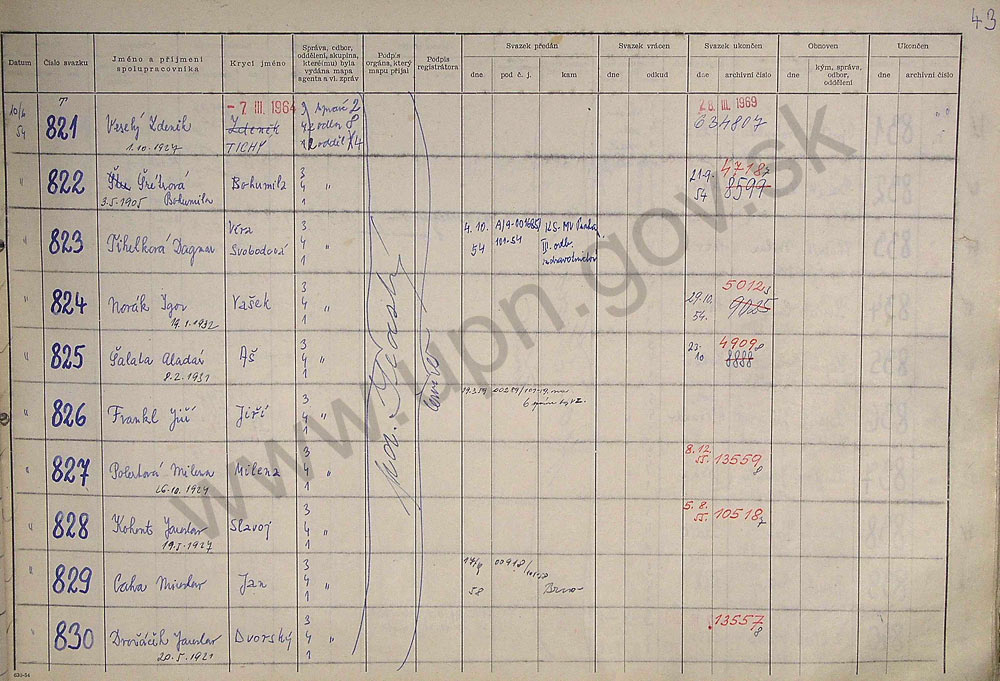 43
Datum
Číslo svazku
Jméno a příjmení
spolupracovníka
Krycí jméno
Správa, odbor,
oddělení, skupina,
které(mu) byla
vydána mapa
agenta a vl. zpráv
Podpis
orgána, který
mapu přijal
Podpis
registrátora
Svazek předán
dne
pod č. j.
kam
Svazek vrácen
dne
odkud
Svazek ukončen
dne
archivní číslo
Obnoven
dne
kým, správa,
odbor,
oddělení
Ukončen
dne
archivní číslo
10/6
54
T
821
Veselý Zdeněk
1.10.1927
- 7 III. 1964
Zdeněk
TICHÝ
správa 2
odbor 8
28 III. 1969
634807
822
Bohumila
3.5.1905
Bohumila
3
4 "
1
21.9.
54
47187
8599
823
Dagmar
Věra
Svobodová
3
4 "
1
4.10.
54
101-54
KS-MV Praha
III. odb.
824
Novák Igor
14.1.1932
Vašek
3
4 "
1
29.10.
54.
5012
9025
825
Šalata Aladár
8.2.1931
Aš
3
4 "
1
23.
10
49098
8888
826
Frankl Jiří
Jiří
3
4 "
1
827
Milena
26.10.1927
Milena
3
4 "
1
8.12.
55.
13559
8
828
Kohout Jaroslav
19.5.1927
Slavoj
3
4 "
1
5.8.
55.
10518
7
829
Caha Miroslav
Jan
3
4 "
1
58
00918/
Brno
830
Dvořáček Jaroslav
20.5.1921
Dvorský
3
4 "
1
13557
8
www.upn.gov.sk
630-54